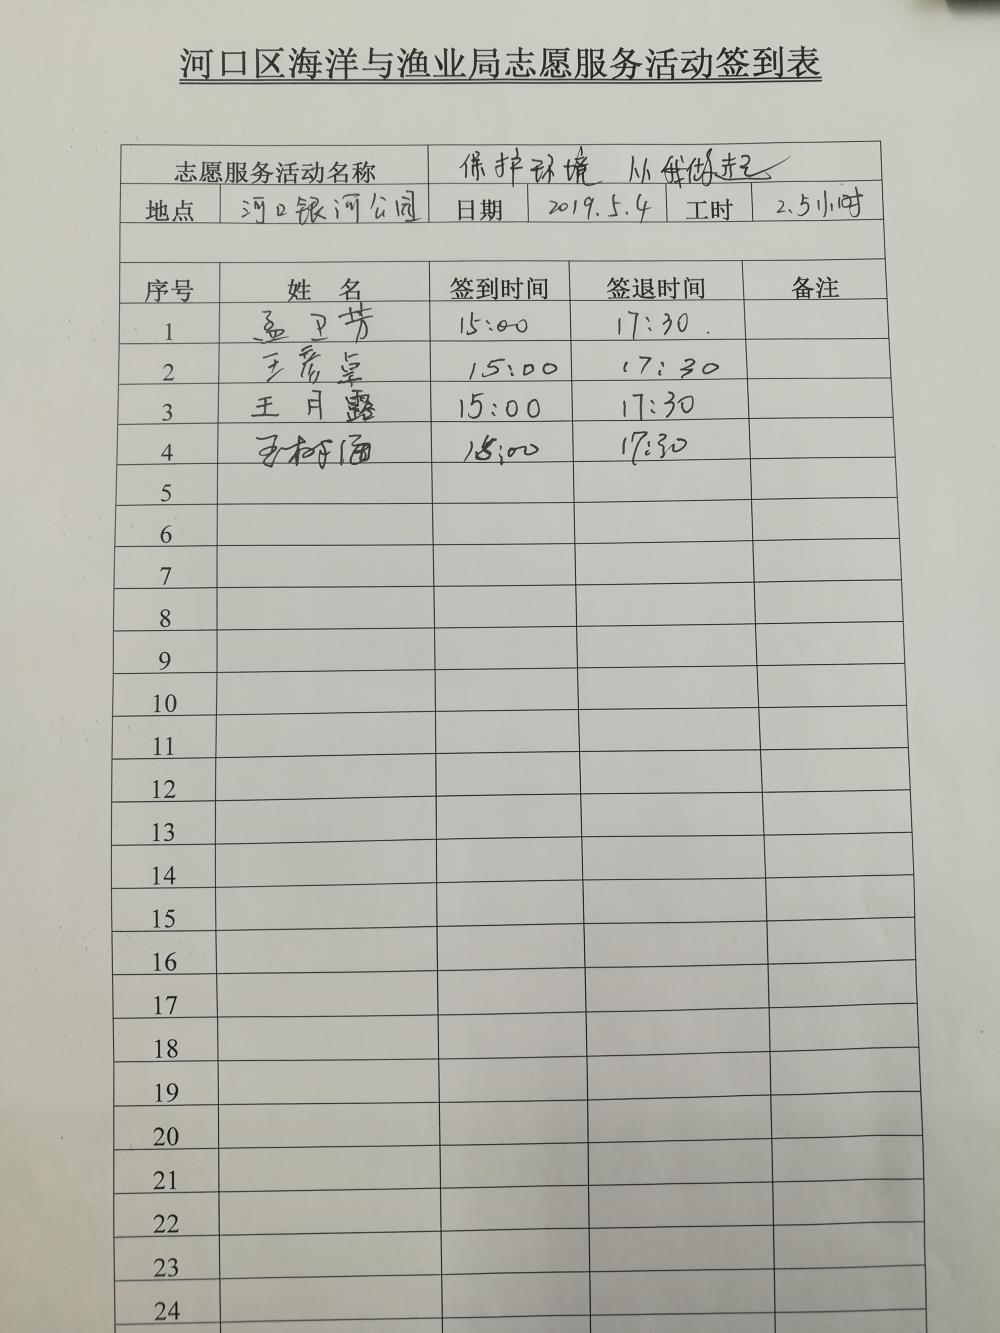 河口区海洋与渔业局志愿服务活动签到表
志愿服务活动名称 保护环境 从我做起
地点 河口银河公园 日期 2019.5.4 工时 2.5小时
序号 姓 名 签到时间 签退时间 备注
1 孟卫芳 15:00 17:30.
2 王彦卓 15:00 17:30
3 王月露 15:00 17:30
4 王树海 15:00 17:30
5
6
7
8
9
10
11
12
13
14
15
16
17
18
19
20
21
22
23
24